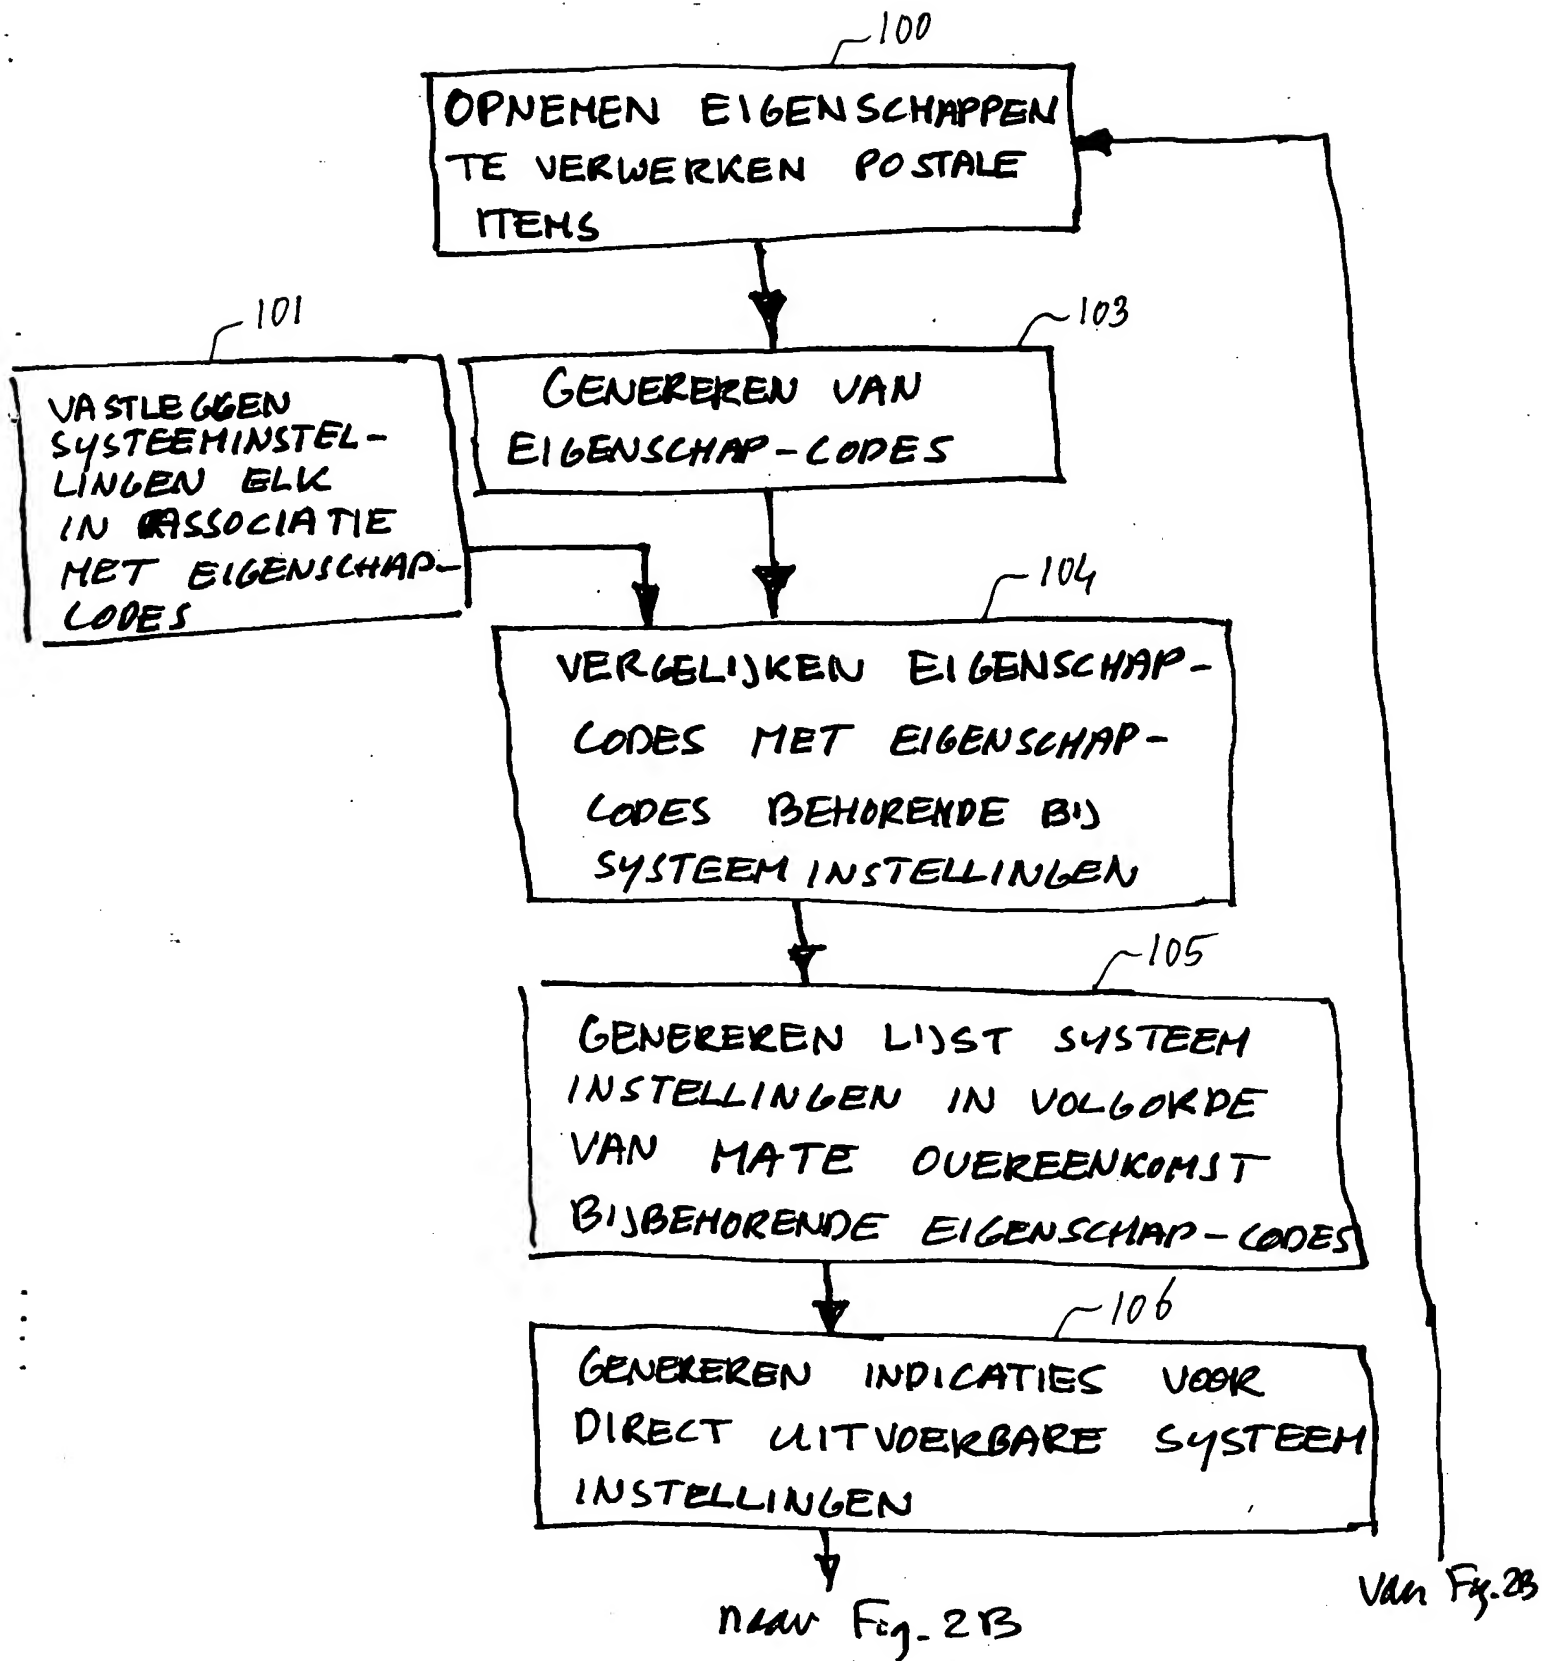 100
OPNEMEN EIGENSCHAPPEN
TE VERWERKEN POSTALE
ITEMS
101
VASTLEGGEN
SYSTEEMINSTEL-
LINGEN ELK
IN ASSOCIATIE
MET EIGENSCHAP-
CODES
103
GENEREREN VAN
EIGENSCHAP-CODES
104
VERGELIJKEN EIGENSCHAP-
CODES MET EIGENSCHAP-
CODES BEHORENDE BIJ
SYSTEEM INSTELLINGEN
105
GENEREREN LIJST SYSTEEM
INSTELLINGEN IN VOLGORDE
VAN MATE OVEREENKOMST
BIJBEHORENDE EIGENSCHAP-CODES
106
GENEREREN INDICATIES VOOR
DIRECT UITVOERBARE SYSTEEM
INSTELLINGEN
naar Fig. 2B
van Fig. 2B